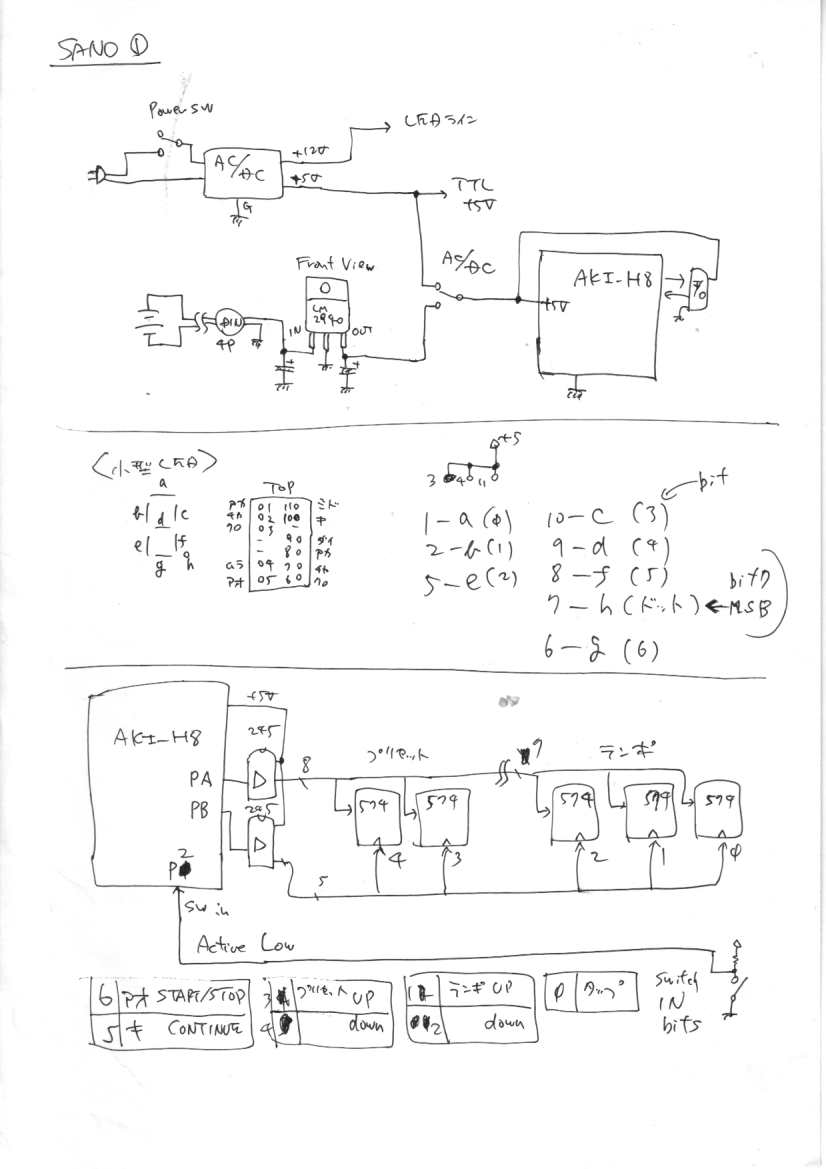 SANO ①
Power SW
AC/DC
+12V
LEDライン
+5V
G
TTL
+5V
AC/DC
Front View
LM
2940
IN
OUT
DIN
4P
AKI-H8
+5V
I/O
〈小型LED〉
a
b
d
c
e
f
g
h
TOP
アオ
01
110
ミド
02
100
キ
クロ
03
-
-
90
ダイ
-
80
アカ
04
70
アオ
05
60
クロ
+5
3
4
11
bit
1-a (0)
10-c (3)
2-b (1)
9-d (4)
5-e (2)
8-f (5)
7-h (ドット) ← MSB
bit7
6-g (6)
AKI-H8
+5V
245
PA
8
プリセット
7
テンポ
574
574
574
574
574
PB
245
4
3
2
1
0
P2
5
SW in
Active Low
6 アオ START/STOP
5 キ CONTINUE
3 プリセット UP
4 down
1 テンポ UP
2 down
0 タップ
Switch
IN
bits